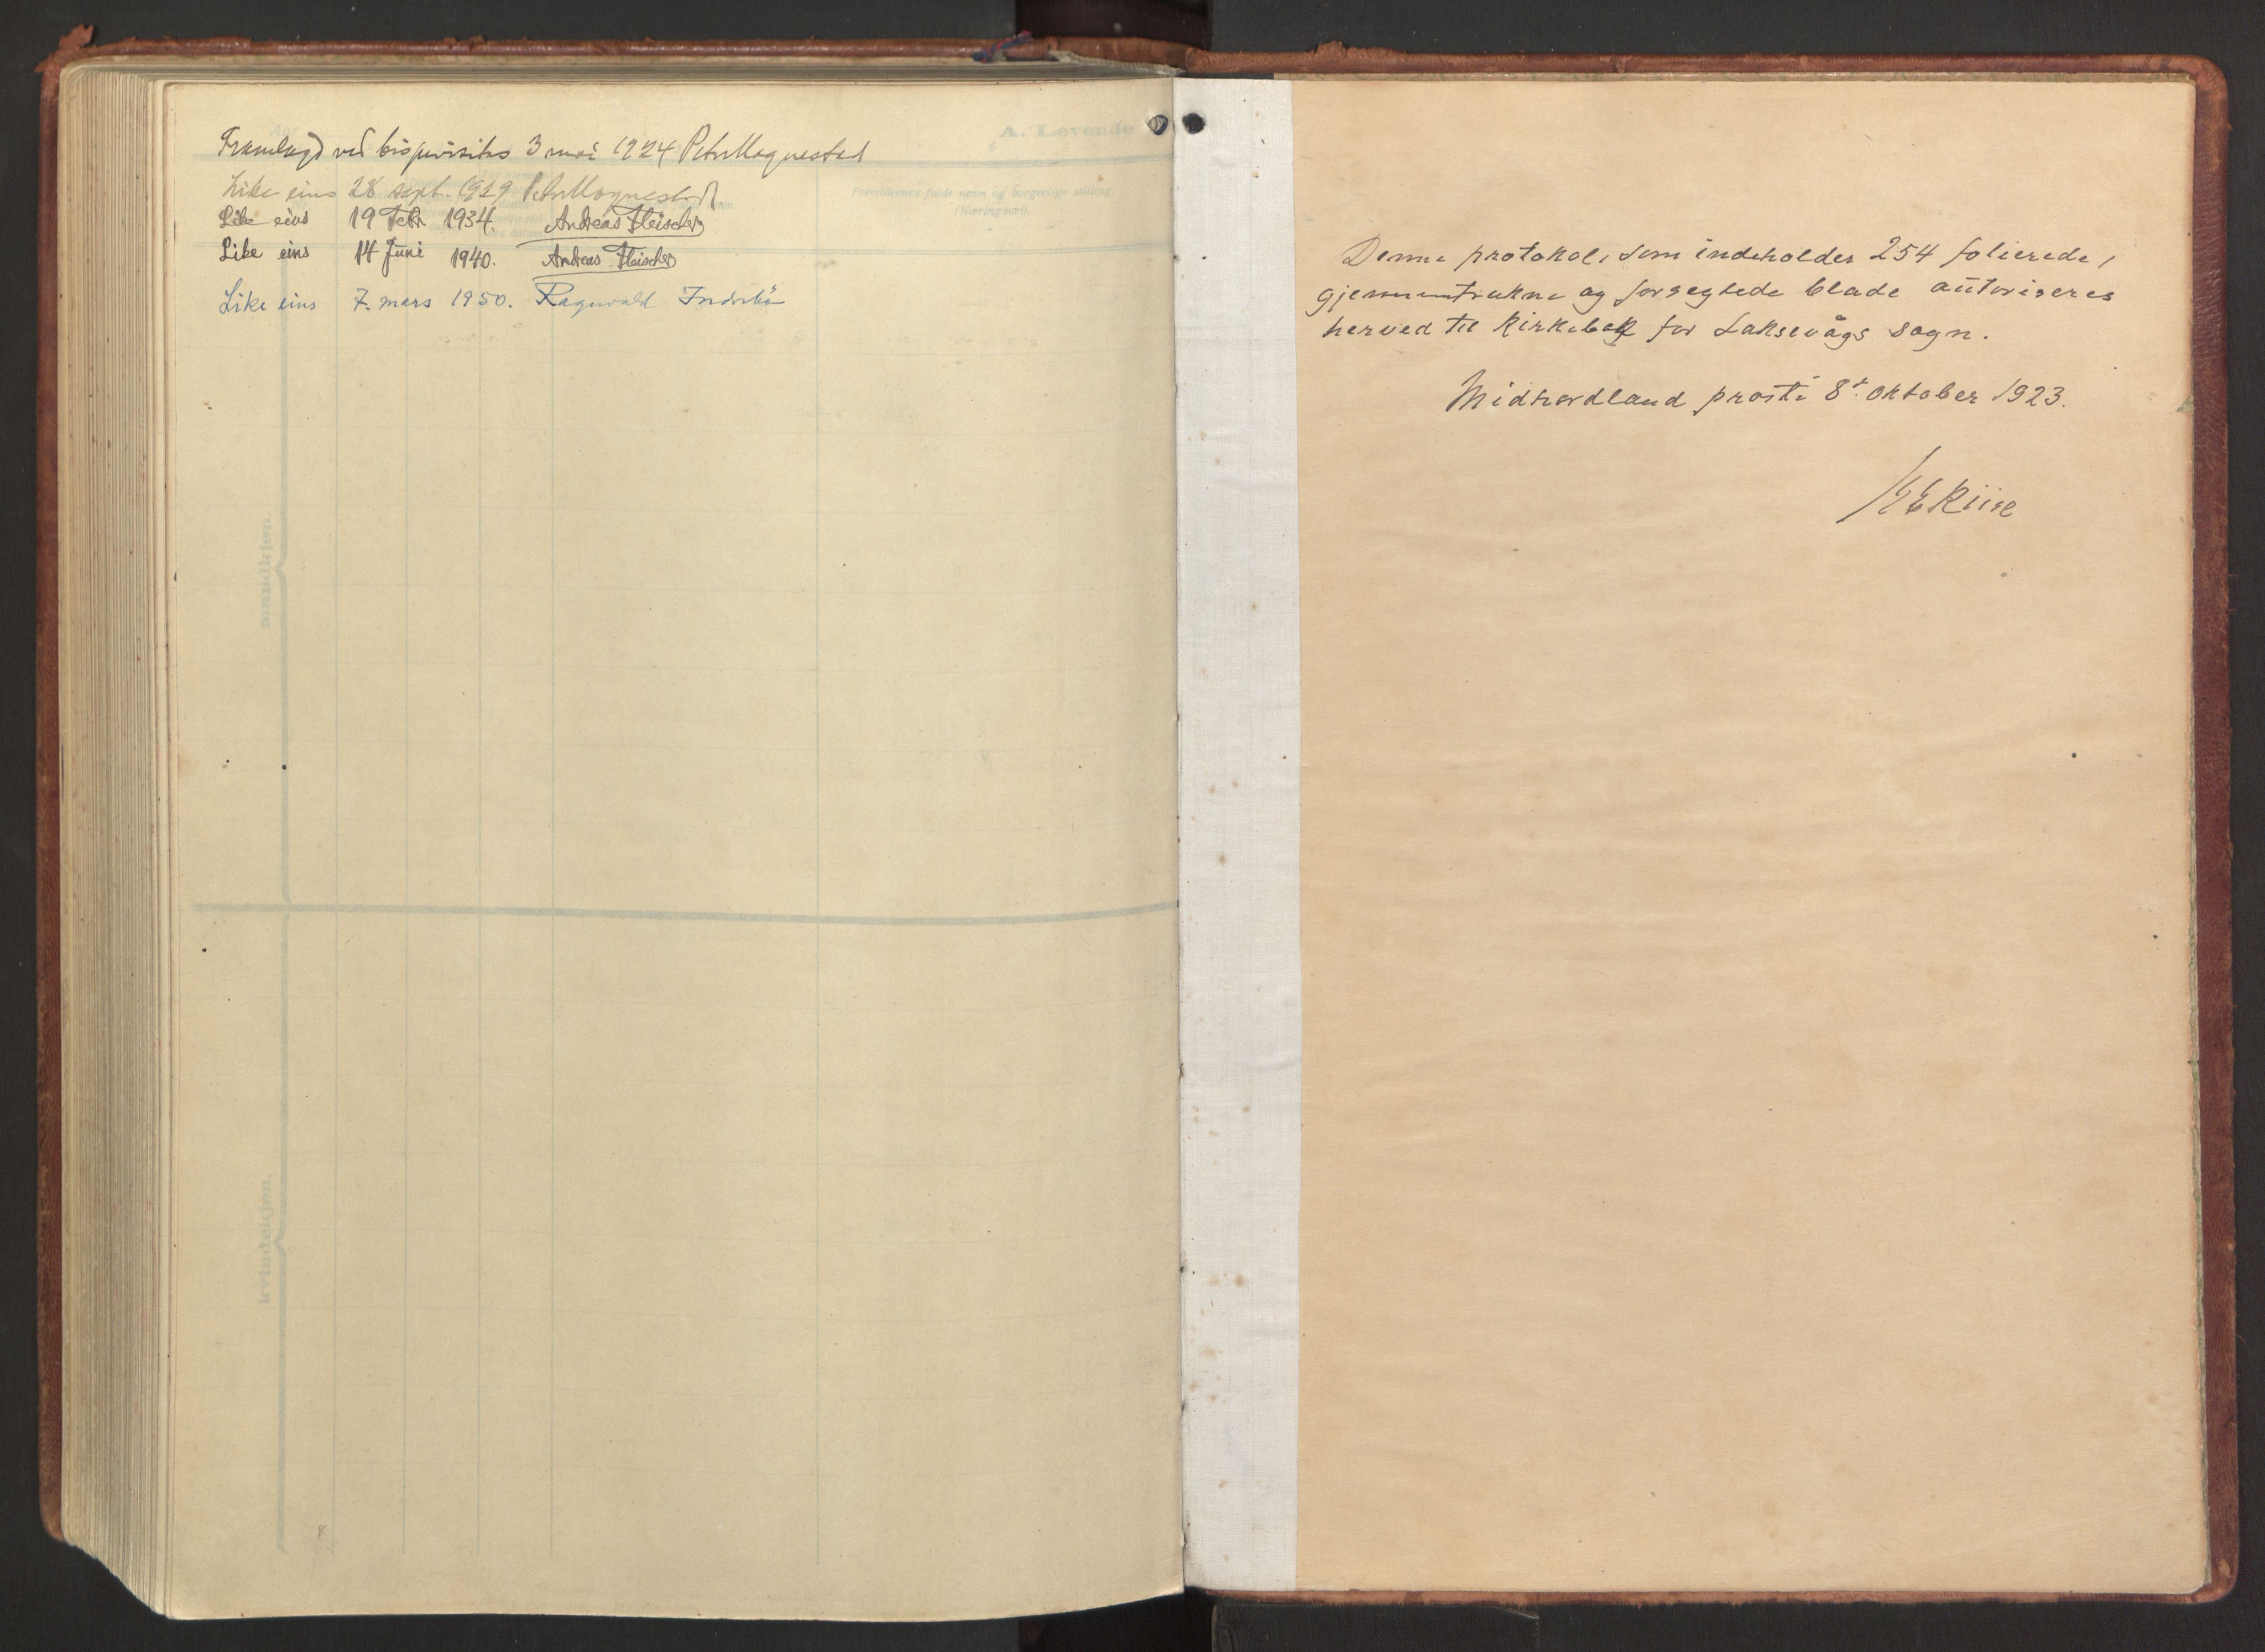 A. Levende
Framlagd ved bispevisitas 3 mai 1924 Peter Hognestad
Like eins 28 sept. 1929 Peter Hognestad.
Foreldrenes fulde navn og borgerlige stilling.
(Næringsvei).
Like eins 19 Febr. 1934. Andreas Fleischer
Like eins 14 Juni 1940. Andreas Fleischer
Like eins 7. mars 1950. Ragnvald Indrebö
mandkjøn.
kvindekjøn.
Denne protokol, som indeholder 254 folierede,
gjennemtrukne og forseglede blade autoriseres
herved til kirkebok for Laksevågs sogn.
Midhordland prosti 8de oktober 1923.
Riise